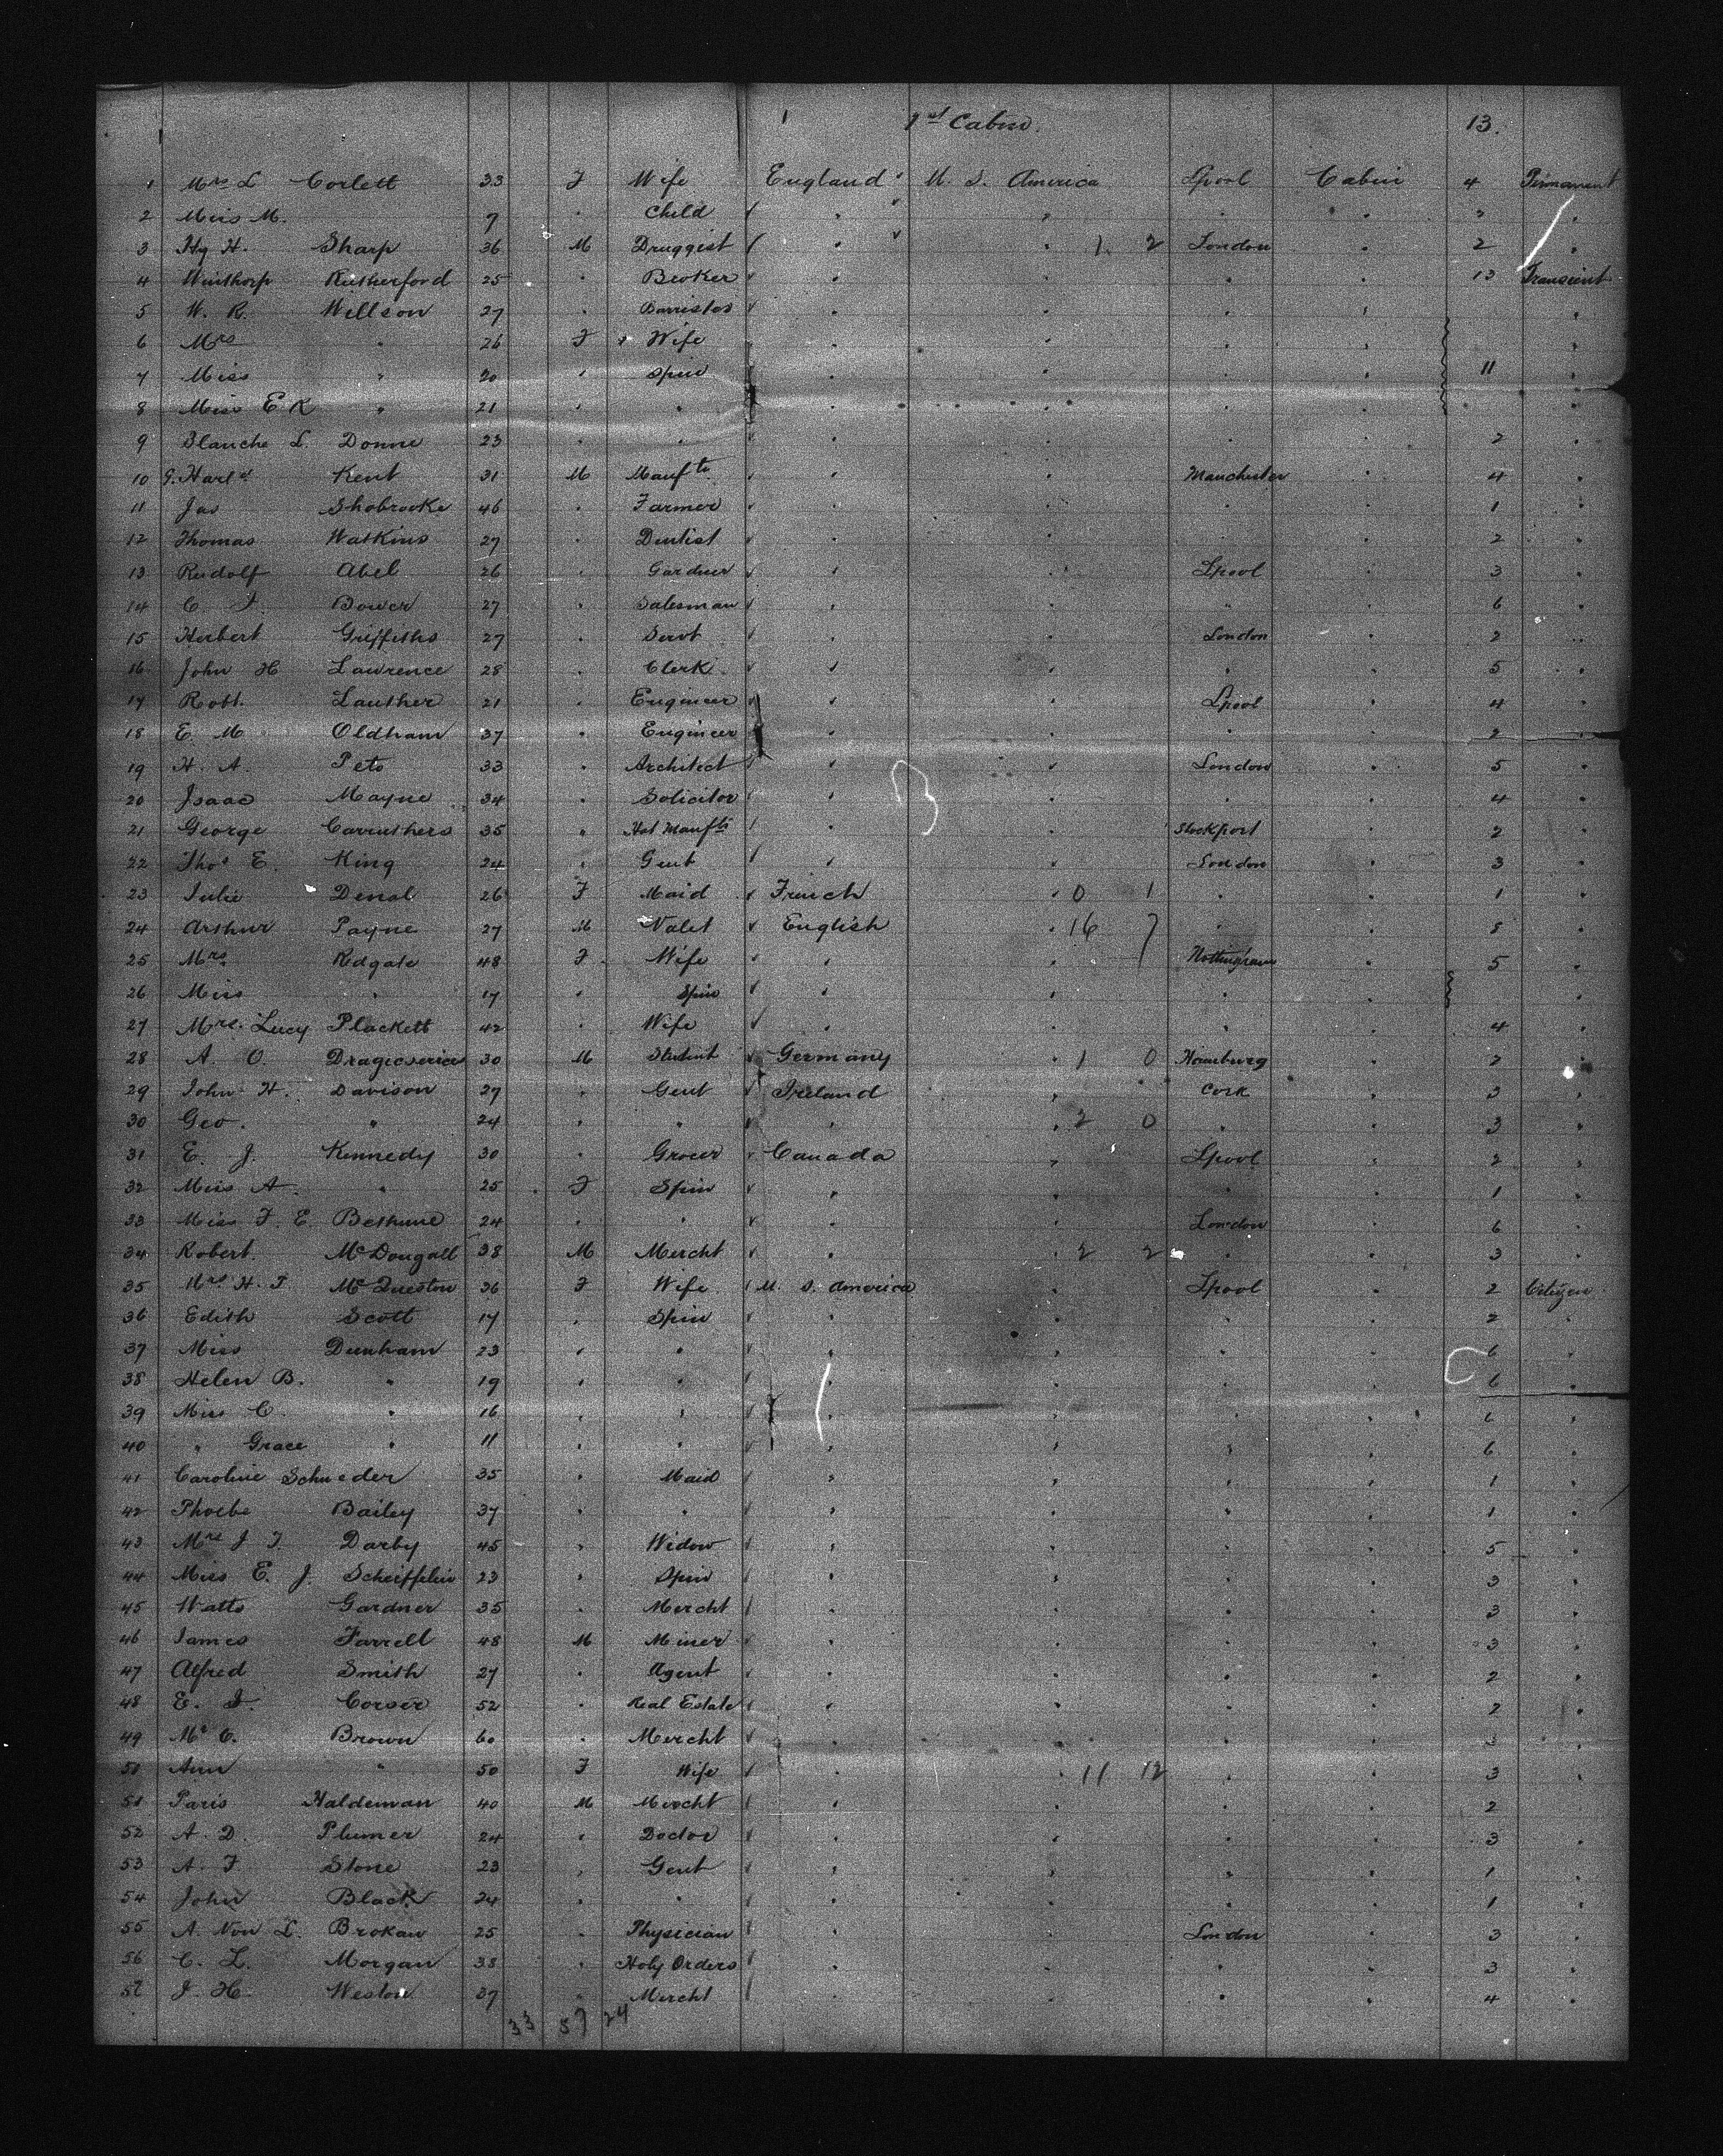 1 1st Cabin. 13.
1 Mrs L Corlett 33 F Wife England U. S. America Lpool Cabin 4 Permanent
2 Miss M. 7 " Child " " " " 3 "
3 Hy H. Sharp 36 M Druggist " " 1 2 London " 2 "
4 Winthorp Rutherford 25 " Broker " " " " 13 Transient
5 W. R. Willson 27 " Barrister " " " " "
6 Mrs " 26 F Wife " " " " "
7 Miss " 20 " Spin " " " " 11 "
8 Miss E K " 21 " " " " " " "
9 Blanche L. Donne 23 " " " " " " 2 "
10 G. Harld Kent 31 M Manuftr " " Manchester " 4 "
11 Jas Shobrooke 46 " Farmer " " " " 1 "
12 Thomas Watkins 27 " Dentist " " " " 2 "
13 Rudolf Abel 26 " Gardner " " Lpool " 3 "
14 C. J. Bower 27 " Salesman " " " " 6 "
15 Herbert Griffiths 27 " Servt " " London " 2 "
16 John H Lawrence 28 " Clerk " " " " 5 "
17 Robt. Lauther 21 " Engineer " " Lpool " 4 "
18 E. M Oldham 37 " Engineer " " " " 2 "
19 H. A. Peto 33 " Architect " " London " 5 "
20 Isaac Mayne 34 " Solicitor " " " " 4 "
21 George Carruthers 35 " Hat Manuftr " " Stockport " 2 "
22 Thos E. King 24 " Gent " " London " 3 "
23 Julie Denal 26 F Maid French " 0 1 " " 1 "
24 Arthur Payne 27 M Valet English " 16 7 " " 8 "
25 Mrs Redgate 48 F Wife " " Nottingham " 5 "
26 Miss " 17 " Spin " " " " "
27 Mrs. Lucy Plackett 42 " Wife " " " " 4 "
28 A. O. 30 M Student Germany " 1 0 Hamburg " 2 "
29 John H. Davison 27 " Gent Ireland " Cork " 3 "
30 Geo. " 24 " " " " 2 0 " " 3 "
31 E. J. Kennedy 30 " Grocer Canada " Lpool " 2 "
32 Miss A. " 25 F Spin " " " " 1 "
33 Miss F. E. Bethune 24 " " " " London " 6 "
34 Robert McDougall 38 M Mercht " " 2 2 " " 3 "
35 Mrs H. T. McQueston 36 F Wife U. S. America " Lpool " 2 Citizen
36 Edith Scott 17 " Spin " " " " 2 "
37 Miss Dunham 23 " " " " " " 6 "
38 Helen B. " 19 " " " " " " 6 "
39 Miss C. " 16 " " " " " " 6 "
40 " Grace " 11 " " " " " " 6 "
41 Caroline Schneder 35 " Maid " " " " 1 "
42 Phoebe Bailey 37 " " " " " " 1 "
43 Mrs J. T. Darby 45 " Widow " " " " 5 "
44 Miss E. J. Scheiffelin 23 " Spin " " " " 3 "
45 Watts Gardner 35 " Mercht " " " " 3 "
46 James Farrell 48 M Miner " " " " 3 "
47 Alfred Smith 27 " Agent " " " " 2 "
48 E. J. Corser 52 " Real Estate " " " " 2 "
49 Mr C. Brown 60 " Mercht " " " " 3 "
50 Ann " 50 F Wife " " 11 12 " " 3 "
51 Paris Haldeman 40 M Mercht " " " " 2 "
52 A. D. Plumer 24 " Doctor " " " " 3 "
53 A. F. Stone 23 " Gent " " " " 1 "
54 John Black 24 " " " " " " 1 "
55 A. Von L. Brokaw 25 " Physician " " London " 3 "
56 C. L. Morgan 38 " Holy Orders " " " " 3 "
57 J. H. Weston 37 " Mercht " " " " 4 "
33 57 24